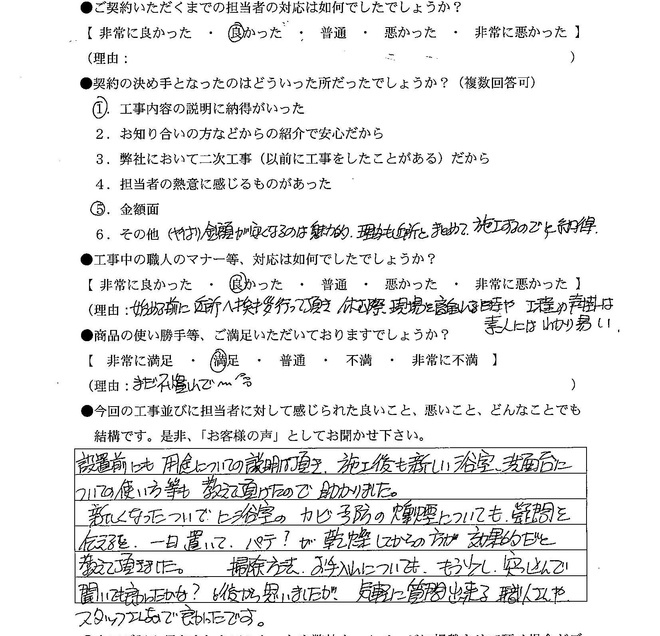 ●ご契約いただくまでの担当者の対応は如何でしたでしょうか？
【 非常に良かった ・ 良かった ・ 普通 ・ 悪かった ・ 非常に悪かった 】
（理由： ）
●契約の決め手となったのはどういった所だったでしょうか？（複数回答可）
１．工事内容の説明に納得がいった
２．お知り合いの方などからの紹介で安心だから
３．弊社において二次工事（以前に工事をしたことがある）だから
４．担当者の熱意に感じるものがあった
５．金額面
６．その他（やはり金額が安くなるのは魅力的．理由も近所とまとめて、施工するのでと納得．
●工事中の職人のマナー等、対応は如何でしたでしょうか？
【 非常に良かった ・ 良かった ・ 普通 ・ 悪かった ・ 非常に悪かった 】
（理由：始める前に近所へ挨拶行って頂き 現場を
素人にはわかり易い．
●商品の使い勝手等、ご満足いただいておりますでしょうか？
【 非常に満足 ・ 満足 ・ 普通 ・ 不満 ・ 非常に不満 】
（理由：まだ ）
●今回の工事並びに担当者に対して感じられた良いこと、悪いこと、どんなことでも
結構です。是非、「お客様の声」としてお聞かせ下さい。
設置前にも 用途についての説明頂き、施工後も新しい浴室、洗面台に
ついての使い方等も 教えて頂けたので 助かりました。
新しくなったついでに浴室の カビ予防の燻煙についても、質問を
伝えると、一日置いて、パテ？が 乾燥してからの方が 効果的だと
教えて頂きました。 掃除方法、お手入れについても、もう少し 突っ込んで
聞いても良かったかな？と後から思いましたが 気軽に質問出来る 職人さんや、
スタッフさんで良かったです。